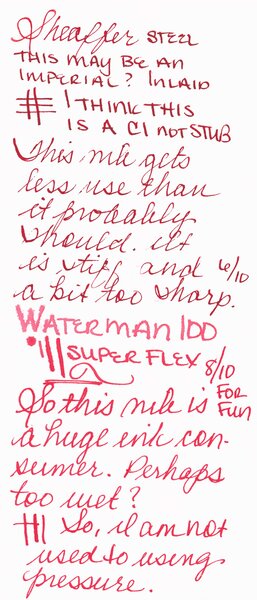 Sheaffer STEEL
THIS MAY BE AN
IMPERIAL? INLAID
I THINK THIS
IS A CI NOT STUB
This nib gets
less use than
it probably
should. It
is stiff and 6/10
a bit too sharp.
WATERMAN 100
SUPER FLEX 8/10
FOR
FUN
So this nib is
a huge ink con-
sumer. Perhaps
too wet?
So, I am not
used to using
pressure.